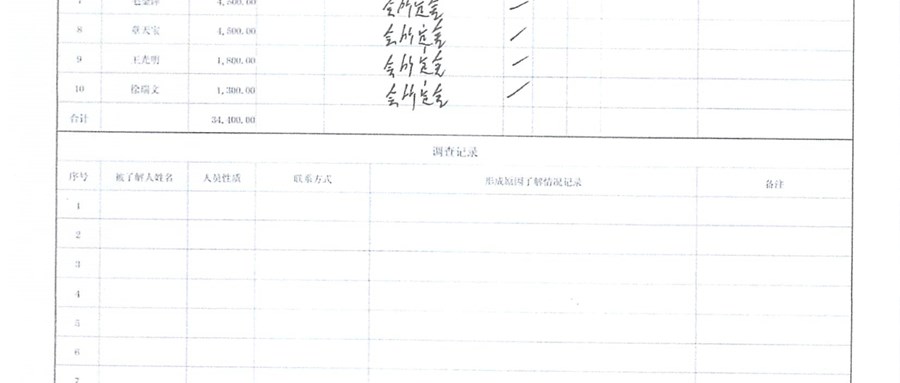 7 4,500.00 会所定金
8 章天宝 4,500.00 会所定金
9 王光明 4,800.00 会所定金
10 徐瑞文 4,300.00 会所定金
合计 34,400.00
调查记录
序号 被了解人姓名 人员性质 联系方式 形成原因了解情况记录 备注
1
2
3
4
5
6
7